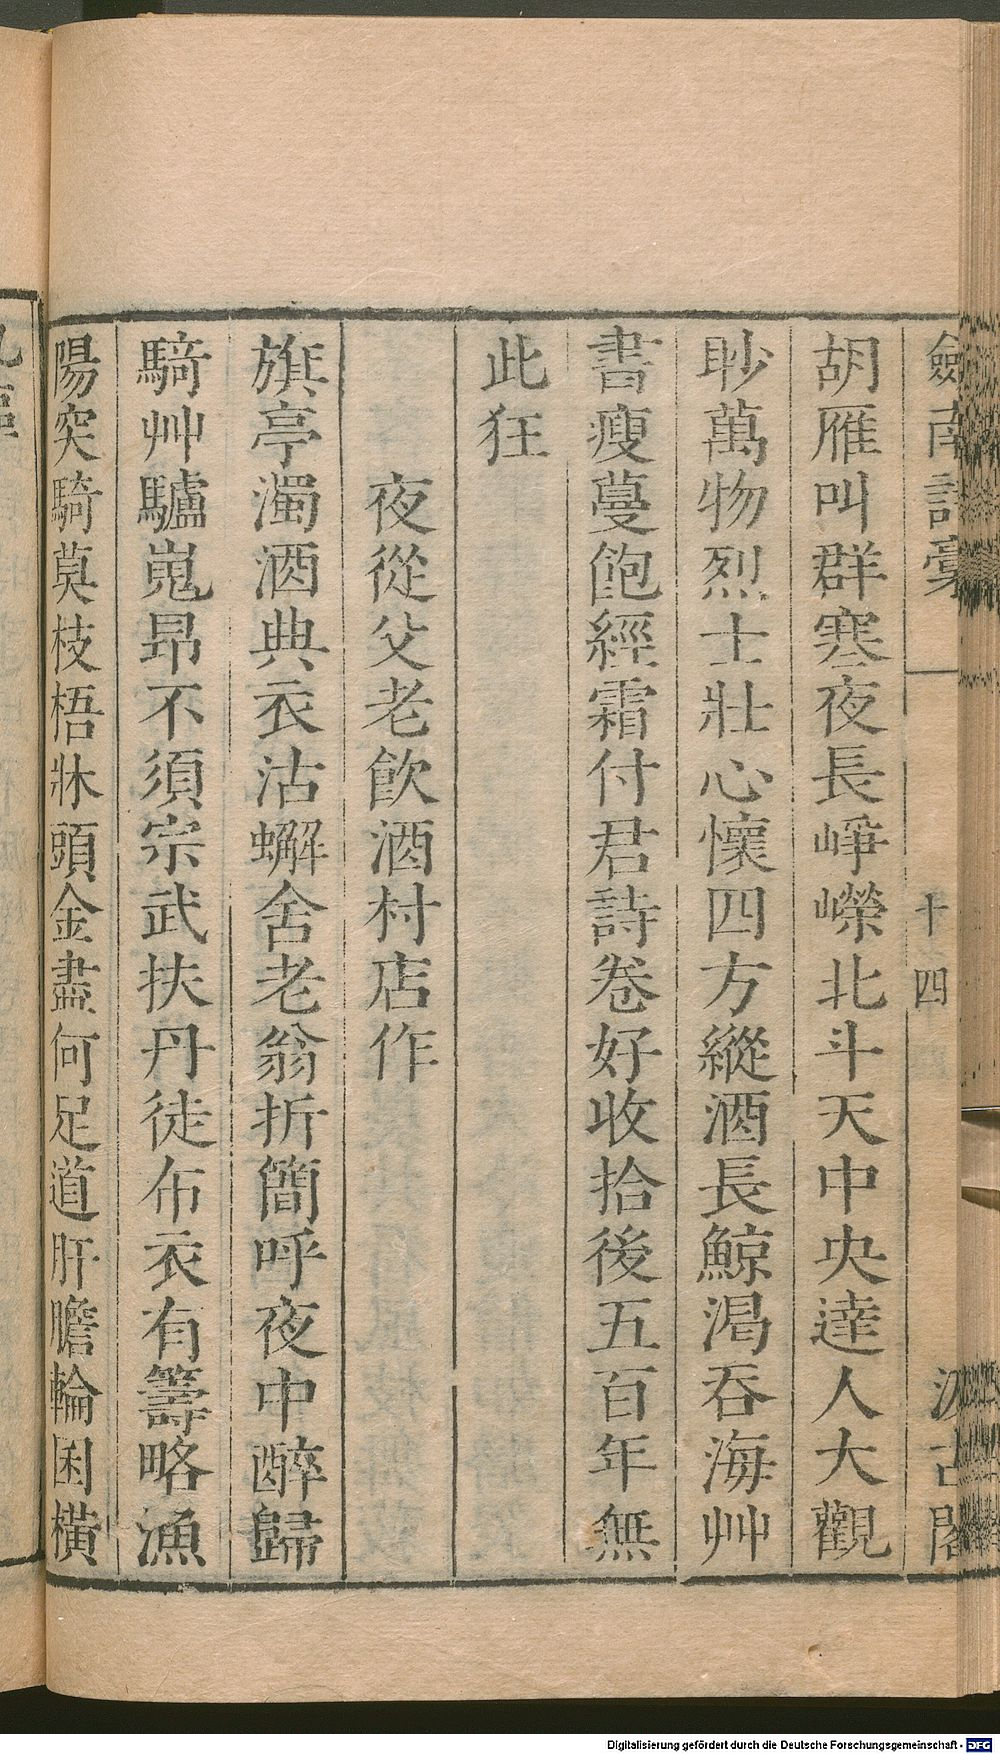 劒南詩稾
十四
汲古閣
胡雁叫群寒夜長崢嶸北斗天中央達人大觀
眇萬物烈士壯心懷四方縱酒長鯨渴吞海艸
書瘦蔓飽經霜付君詩卷好收拾後五百年無
此狂
夜從父老飲酒村店作
旗亭濁酒典衣沽蠏舍老翁折簡呼夜中醉歸
騎艸驢嵬昂不須宗武扶丹徒布衣有籌略漁
陽突騎莫枝梧牀頭金盡何足道肝膽輪囷橫
Digitalisierung gefördert durch die Deutsche Forschungsgemeinschaft - DFG